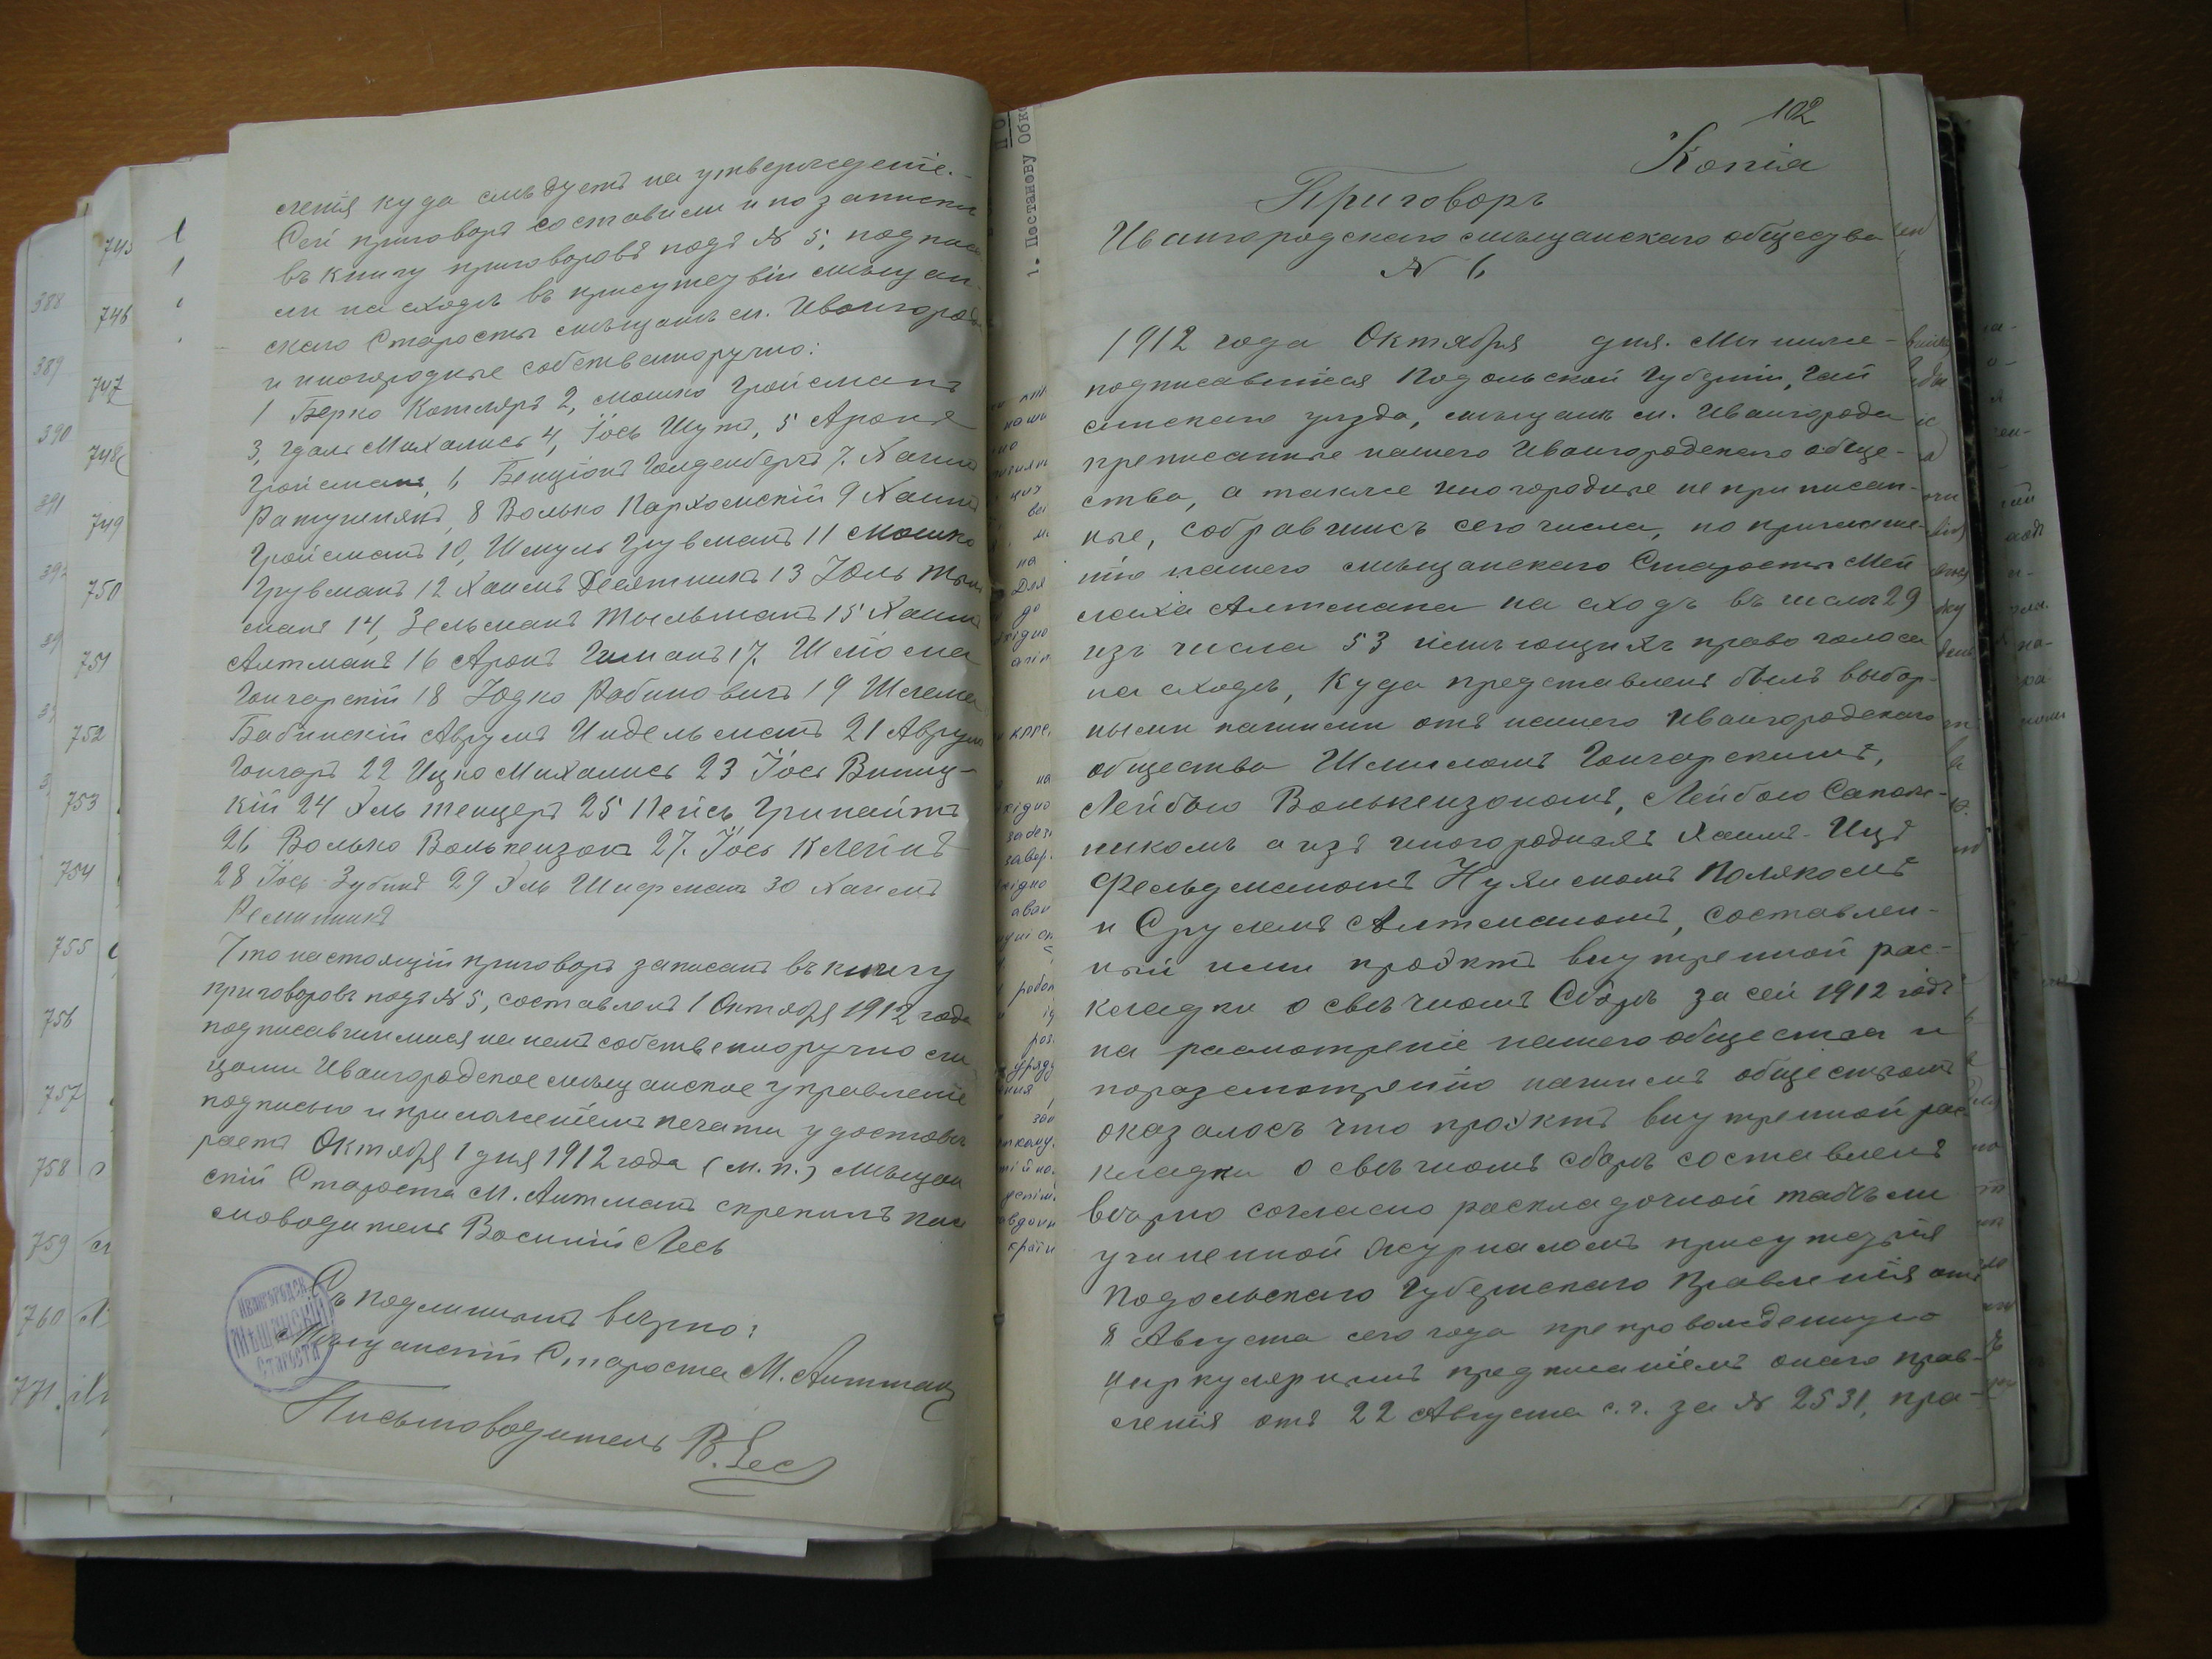 ленія куда слѣдуетъ на утвержденіе.-
Сей приговоръ составили и по записки
въ книгу приговоровъ подъ № 5, подписа
ли на сходѣ въ присутствіи мѣщан-
скаго Старосты мѣщане м. Ивангорода
и иногородные собственоручно:
1 Берко Котляръ 2, Мошко Гройсманъ
3, Гдаль Михалисъ 4, Іось Шутъ, 5 Аронъ
Гройсманъ, 6 Бенціонъ Голденбергъ 7. Хаимъ
Ратушнякъ, 8 Волько Пархомскій 9 Хаимъ
Гройсманъ 10, Шмуль Грувманъ 11 Мошко
Грувманъ 12 Хаимъ Десятникъ 13 Юль
манъ 14, Зельманъ Тыльманъ 15 Хаимъ
Алтманъ 16 Аронъ 17. Шлёма
Гончарскій 18 Юдко Рабиновичъ 19 Шлема
Бабинскій Аврумъ Индельманъ 21 Аврумъ
Гончаръ 22 Ицко Михалисъ 23 Іось Винниц-
кій 24 Эль Тенцеръ 25 Пейсь
26 Волько Волькензонъ 27. Іось Клейнъ
28 Іось Зубикъ 29 Эль Шифманъ 30 Хаимъ
Ременникъ
Что настоящій приговоръ записанъ въ книгу
приговоровъ подъ № 5, составленъ 1 Октября 1912 года
подписавшимися на немъ собственноручно ли
цами Ивангородское мѣщанское управленіе
подписью и приложеніемъ печати удостовѣ
ряетъ Октября 1 дня 1912 года (м. п.) Мѣщан
скій Староста М. Алтманъ скрепилъ пис
моводитель Василій Лесь
Съ подлинымъ вѣрно:
Мѣщанскій Староста М. Алтманъ
Письмоводитель В. Лесь
Ивангородск.
МѢЩАНСКІЙ
Староста
102
Копія
Приговоръ
Ивангородскаго мѣщанскаго общества
№ 6
1912 года Октября дня. Мы ниже-
подписавшіеся Подольской Губерніи, Гай
синскаго уѣзда, мѣщане м. Ивангорода
преписанные нашего Ивангородскаго обще-
ства, а также иногородные не приписан-
ные, собравшись сего числа, по приглаше-
нію нашего мѣщанскаго Старосты Мей
лаха Алтмана на сходъ въ числѣ 29
изъ числа 53 имѣющихъ право голоса
на сходѣ, куда представленъ былъ выбор-
ными нашими отъ нашего Ивангородскаго
общества Шмилемъ Гончарскимъ,
Лейбою Волькензономъ, Лейбою Сапож-
никомъ а изъ иногородныхъ Хаимъ-Ицъ
Фельдманомъ Нухимомъ Поляkомъ
и Срулемъ Алтманомъ, составлен-
ный ими проэктъ внутренной рас-
кладки о свѣчномъ Сборѣ за сей 1912 годъ
на расмотреніе нашего общества и
поразсмотренію нашимъ обществомъ
оказалось что проэктъ внутренной рас-
кладки о свѣчномъ сборѣ составленъ
вѣрно согласно раскладочной табѣли
учиненной Журналомъ присутствія
Подольскаго Губернскаго Правленія отъ
8 Августа сего года препровожденную
циркулярнымъ предписаніемъ онаго прав-
ленія отъ 22 Августа с. г. за № 2531, пра-
745
746
747
748
749
750
751
752
753
754
755
756
757
758
759
760
771
388
389
390
391
1. Постанову